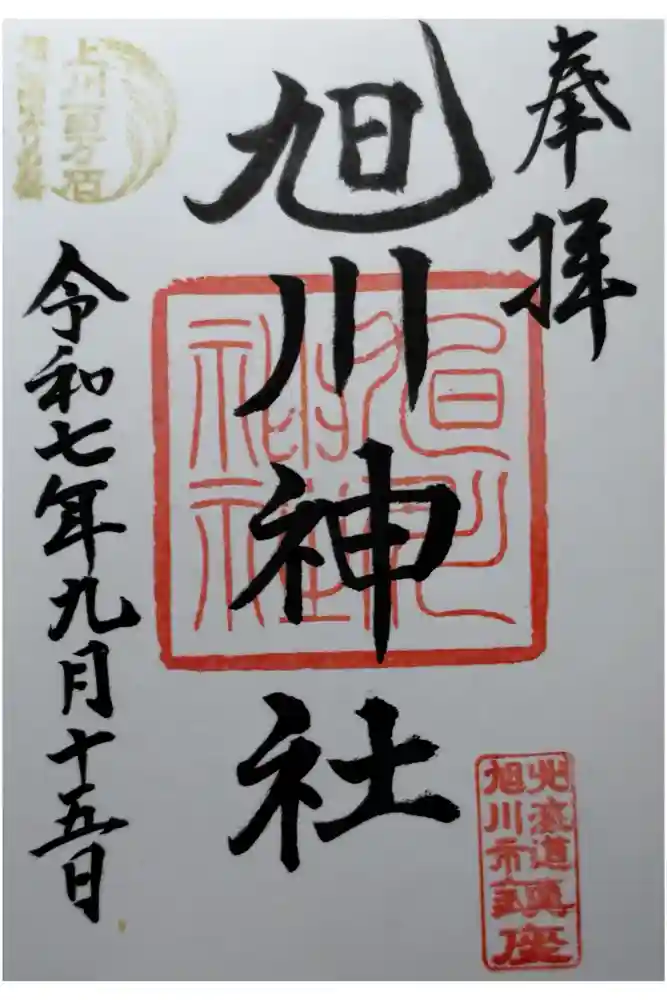 奉拝
旭川神社
北海道
旭川市
鎮座
令和七年九月十五日
上川百万石